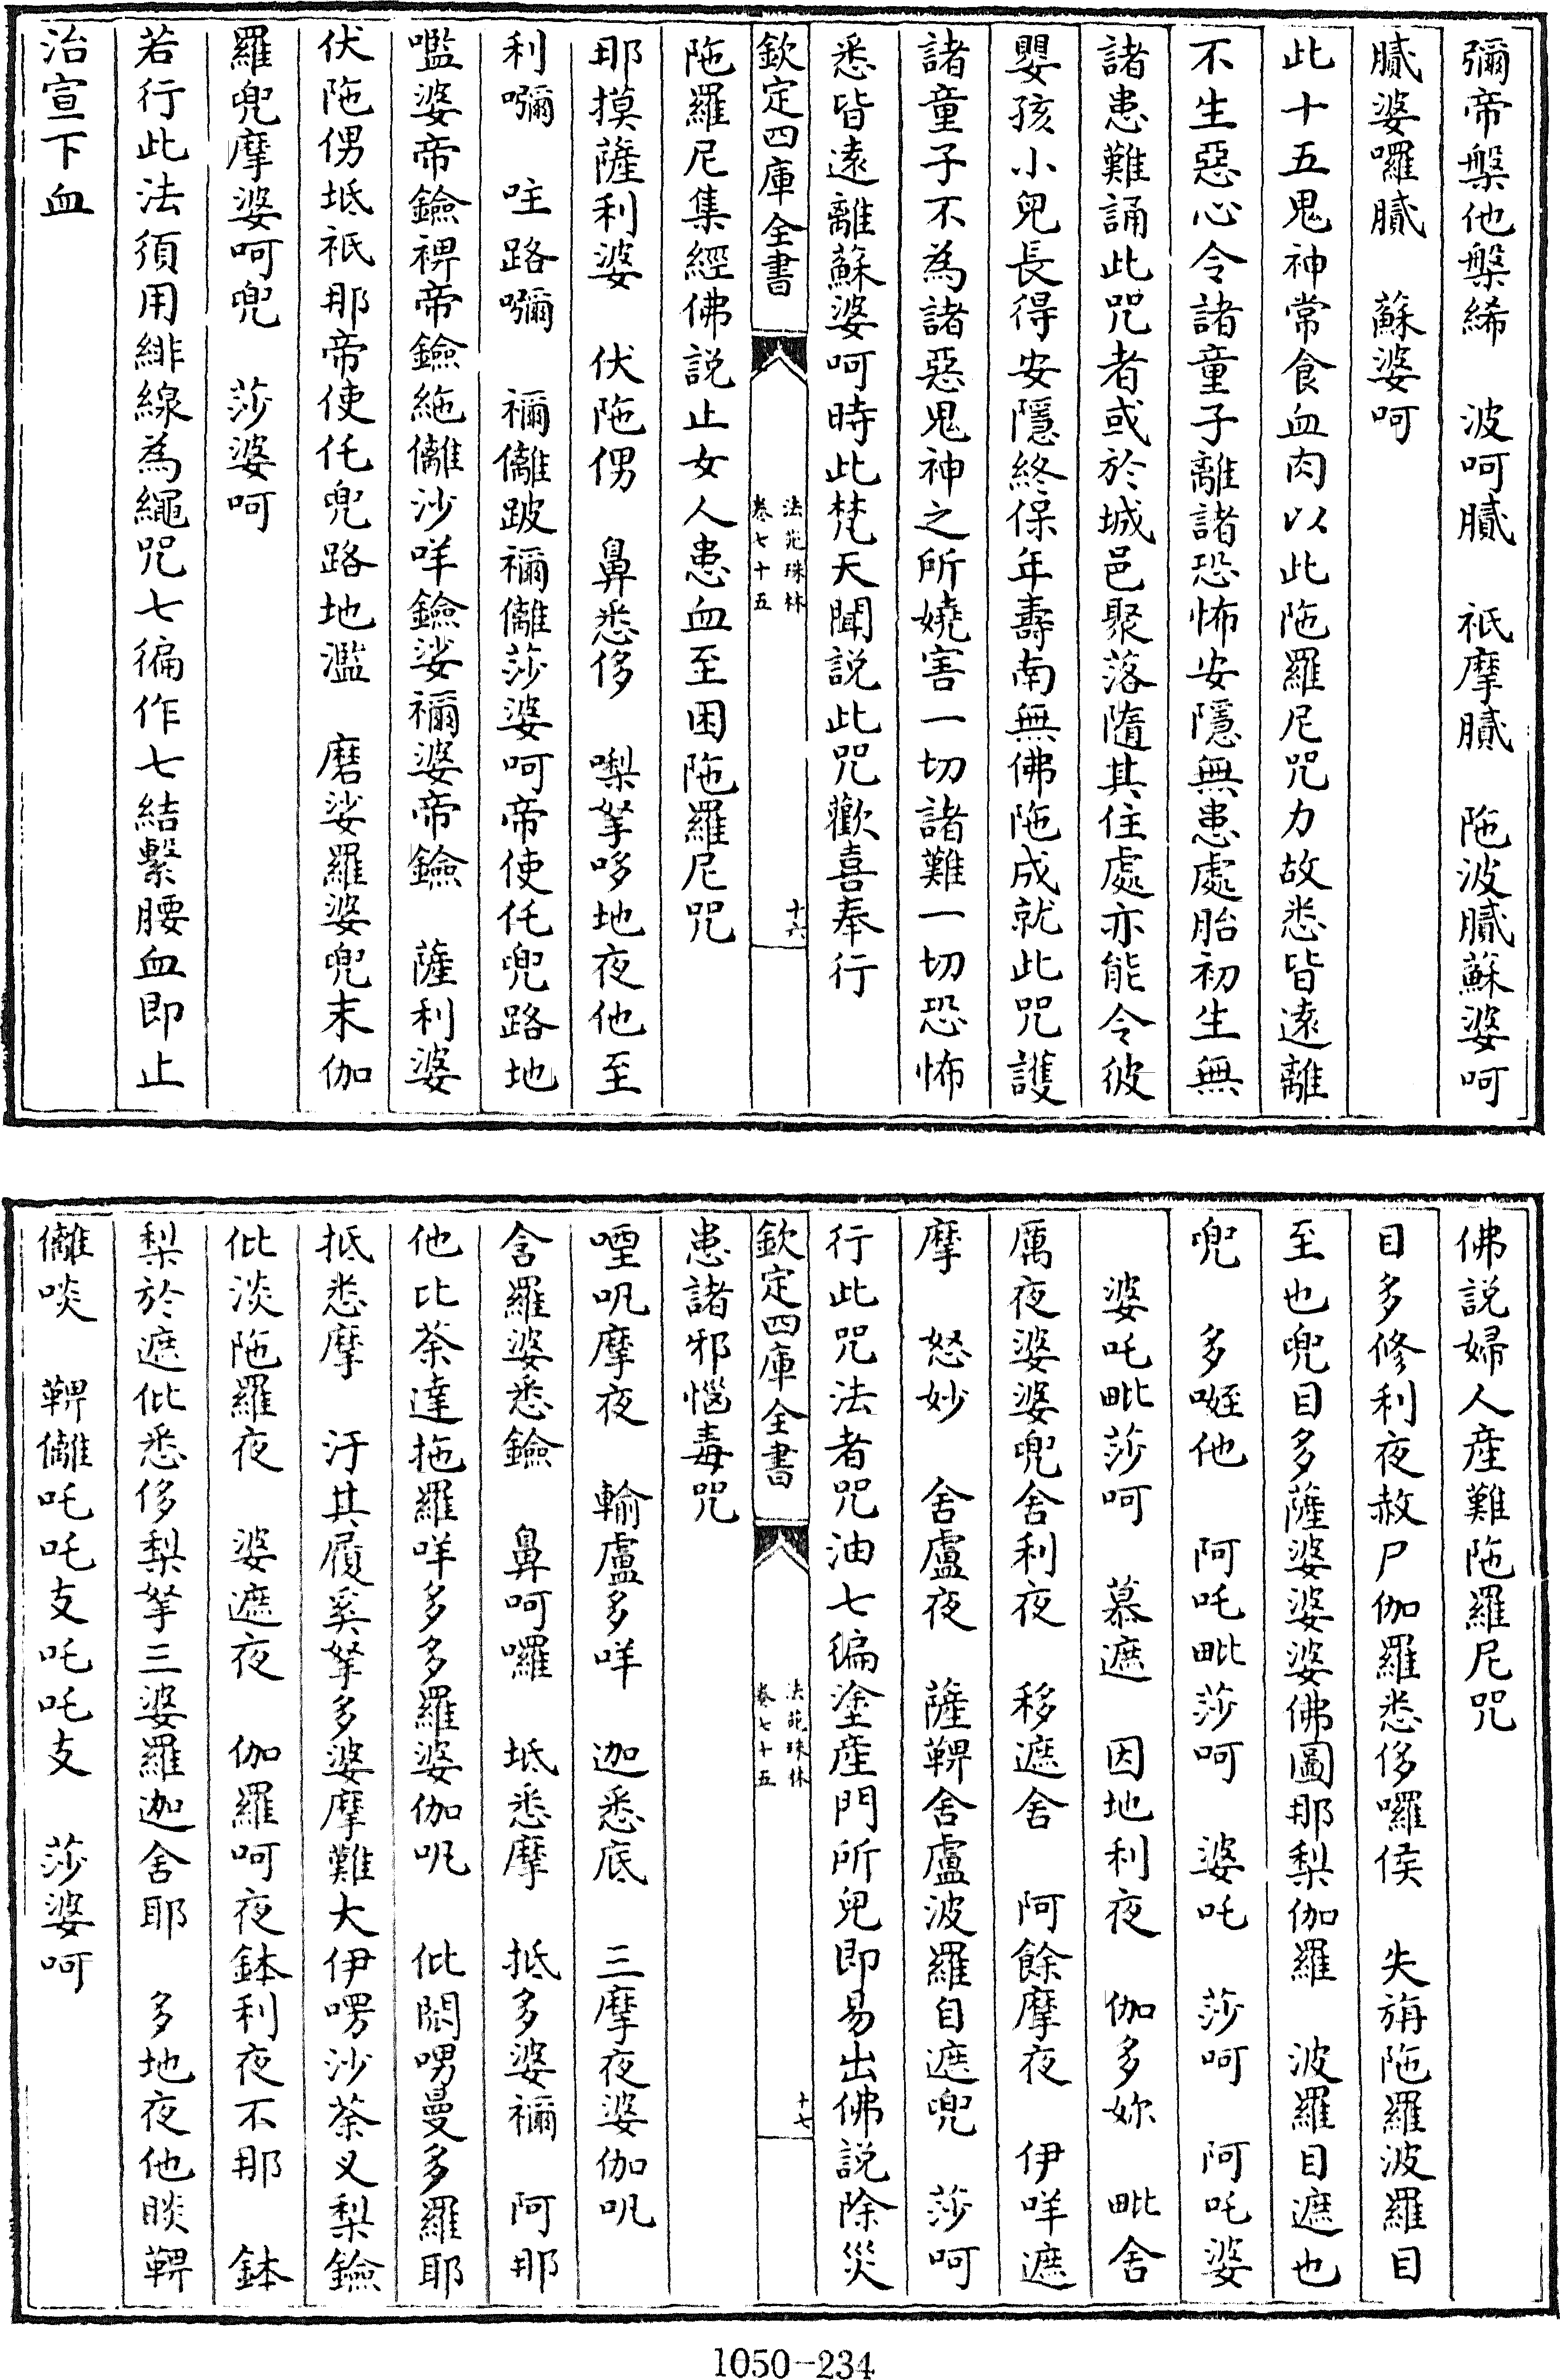 彌帝槃他槃絺　波呵膩　祇摩膩　陁波膩蘇婆呵
膩婆囉膩　蘇婆呵
此十五鬼神常食血肉以此陁羅尼咒力故悉皆逺離
不生惡心令諸童子離諸恐怖安隱無患處胎初生無
諸患難誦此咒者或於城邑聚落隨其住處亦能令彼
嬰孩小兒長得安隱終保年壽南無佛陁成就此咒護
諸童子不為諸惡鬼神之所嬈害一切諸難一切恐怖
悉皆逺離蘇婆呵時此梵天聞説此咒歡喜奉行
欽定四庫全書
法苑珠林
卷七十五
十六
陁羅尼集經佛説止女人患血至困陁羅尼咒
耶摸薩利婆　伏陁侽　鼻悉侈　㗚拏哆地夜他至
利嚩彌　㖵路嚩彌　禰㒧跛禰㒧莎婆呵帝使仛兜路地
㘕婆帝鐱裨帝鐱絁㒧沙咩鐱娑禰婆帝鐱　薩利婆
伏陁侽坻祇那帝使仛兜路地濫　磨娑羅婆兜末伽
羅兜摩婆呵兜　莎婆呵
若行此法須用緋線為繩咒七徧作七結繫腰血即止
治宣下血
佛説婦人産難陁羅尼咒
目多修利夜赦尸伽羅悉侈囉侯　失旃陁羅波羅目
至也兜目多薩婆婆婆佛圖那梨伽羅　波羅目遮也
兜　多㗌他　阿吒毗莎呵　婆吒　莎呵　阿吒婆
　婆吒毗莎呵　慕遮　因地利夜　伽多妳　毗舍
厲夜婆婆兜舍利夜　移遮舍　阿餘摩夜　伊咩遮
摩　怒妙　舍盧夜　薩鞞舍盧波羅自遮兜　莎呵
行此咒法者咒油七徧塗産門所兒即易出佛説除災
欽定四庫全書
法苑珠林
卷七十五
十七
患諸邪惱毒咒
㖶呪摩夜　輸盧多咩　迦悉底　三摩夜婆伽呪
含羅婆悉鐱　鼻呵囉　坻悉摩　抵多婆禰　阿那
他比荼達拖羅咩多多羅婆伽呪　仳闍㗄曼多羅耶
抵悉摩　汙其履奚拏多婆摩難大伊㗄沙荼叉梨鐱
仳淡陁羅夜　婆遮夜　伽羅呵夜鉢利夜不那　鉢
梨於遮仳悉侈梨拏三婆羅迦舍耶　多地夜他睒鞞
㒧啖　鞞㒧吒吒支吒吒支　莎婆呵
1050-234